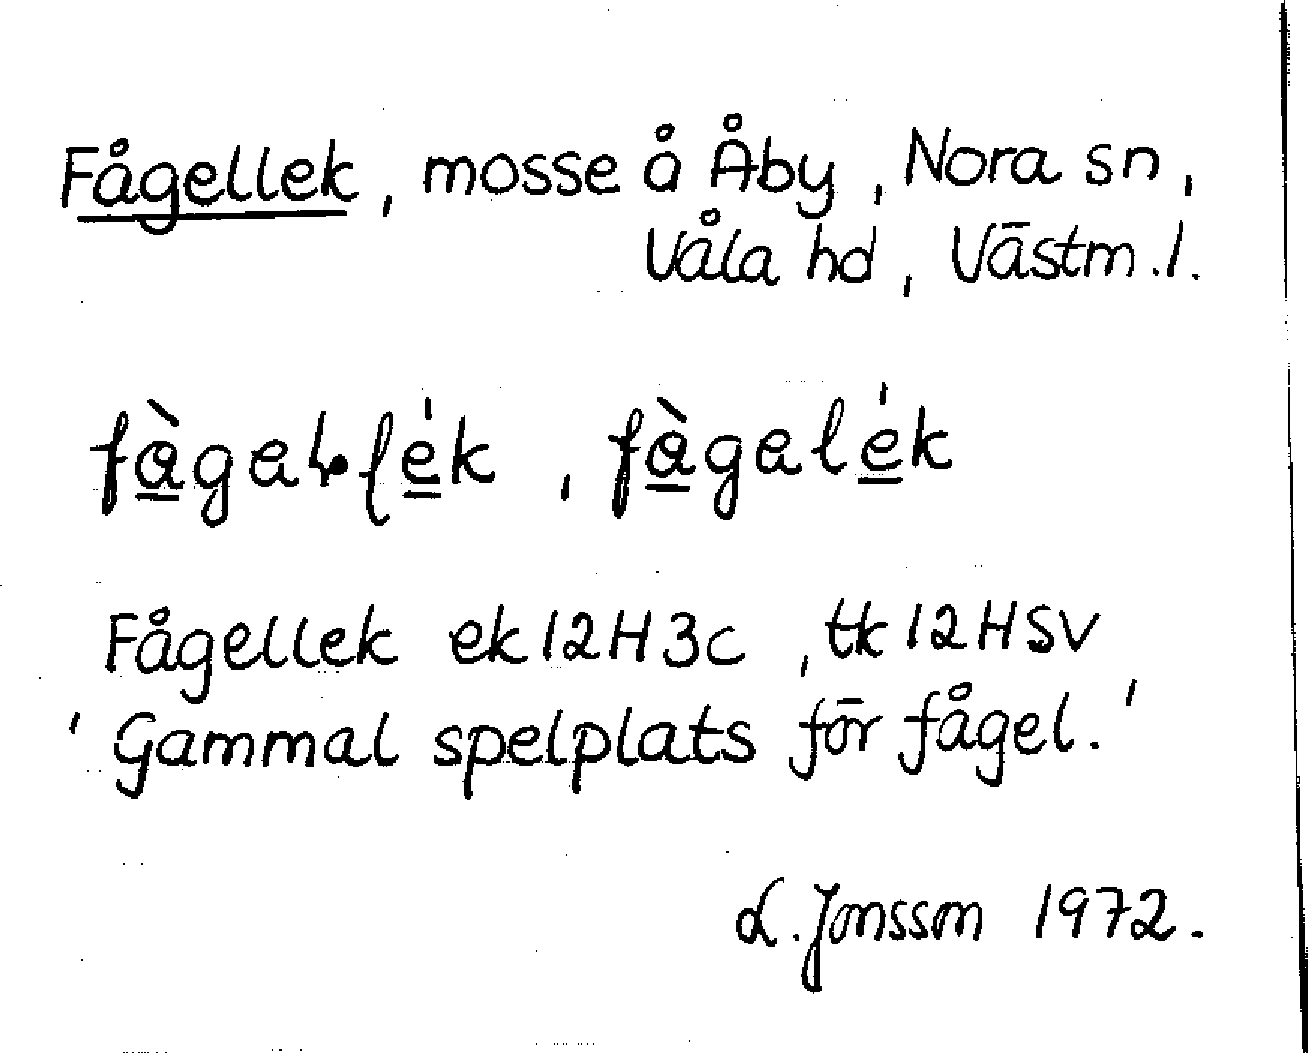 Fågellek, mosse å Åby, Nora sn,
Våla hd, Västm. l.
Fågellek ek 12H3c, tk 12HSV
'Gammal spelplats för fågel.'
L. Jonsson 1972.